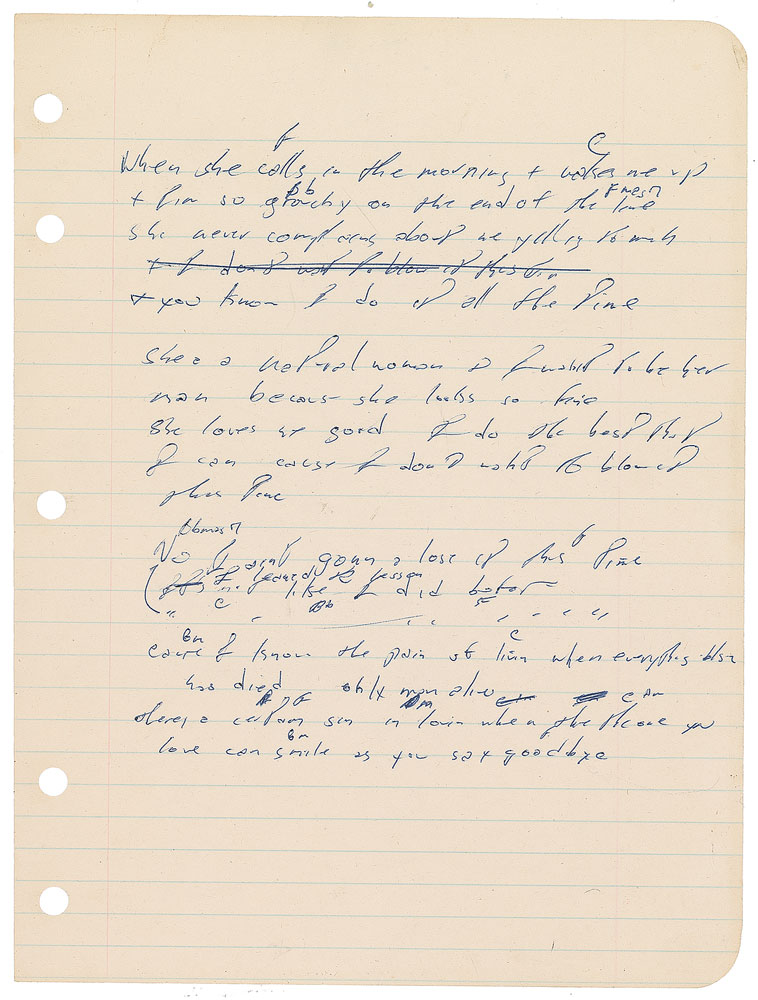 F C
When she calls in the morning + wakes me up
Bb Fmaj7
+ I'm so grouchy on the end of the line
she never complains about me yelling to much
+ I don't want to blow it this time
+ you know I do it all the time
she's a natural woman & I want to be her
man because she looks so fine
she loves me good I do the best that
I can cause I don't want to blow it
this time
Bbmaj7 F
No I ain't gonna lose it this time
I learned the lesson
like I did before
" C " Bb " " " " " "
Bm C
cause I know the pain of livin when everything else
has died only man alive
F Dm C Am
theres a certain sin in lovin when the one you
Bm
love can smile as you say goodbye